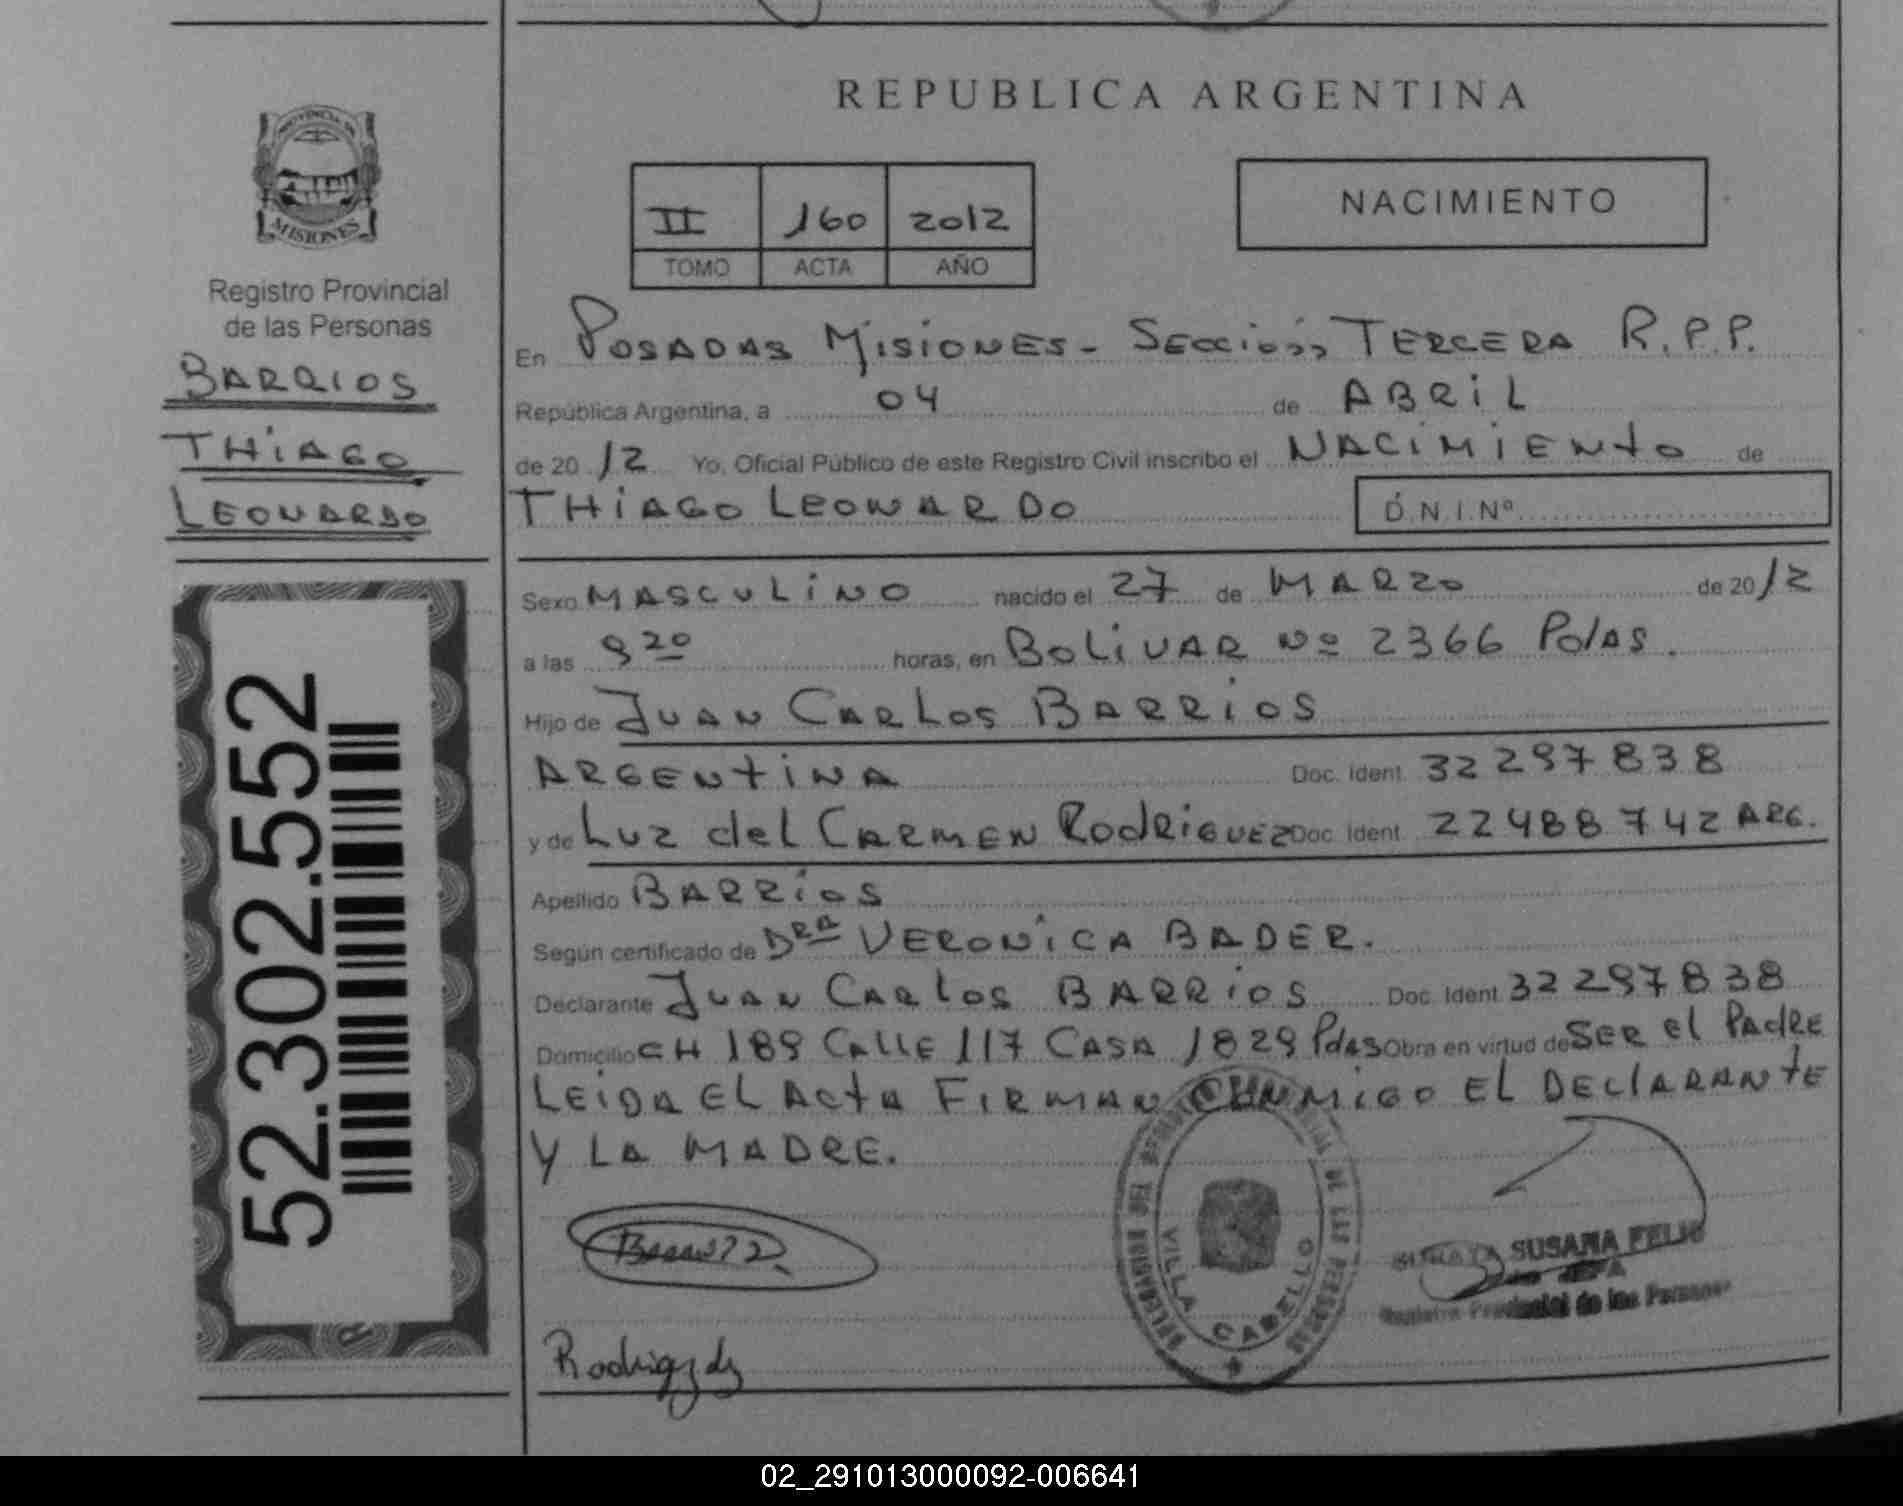 REPUBLICA ARGENTINA
PROVINCIA DE
MISIONES
Registro Provincial
de las Personas
BARRIOS
THIAGO
LEONARDO
52.302.552
II 160 2012
TOMO ACTA AÑO
NACIMIENTO
En POSADAS MISIONES - SECCIÓN TERCERA R.P.P.
República Argentina, a 04 de ABRIL
de 2012 Yo, Oficial Público de este Registro Civil inscribo el NACIMIENTO de
THIAGO LEONARDO D.N.I.Nº
Sexo MASCULINO nacido el 27 de MARZO de 2012
a las 9 20 horas, en BOLIVAR Nº 2366 Pdas.
Hijo de JUAN CARLOS BARRIOS
ARGENTINA Doc. Ident. 32297838
y de LUZ del CARMEN RODRIGUEZ Doc. Ident. 22488742 ARG.
Apellido BARRIOS
Según certificado de DRA VERONICA BADER.
Declarante JUAN CARLOS BARRIOS Doc. Ident. 32297838
Domicilio CH 189 CALLE 117 CASA 1829 Pdas Obra en virtud de SER el PADRE
LEIDA EL ACTA FIRMAN CONMIGO EL DECLARANTE
Y LA MADRE.
DE LAS PERSONAS
VILLA CABELLO
SUSANA FELIU
JEFA
Registro Provincial de las Personas
02_291013000092-006641